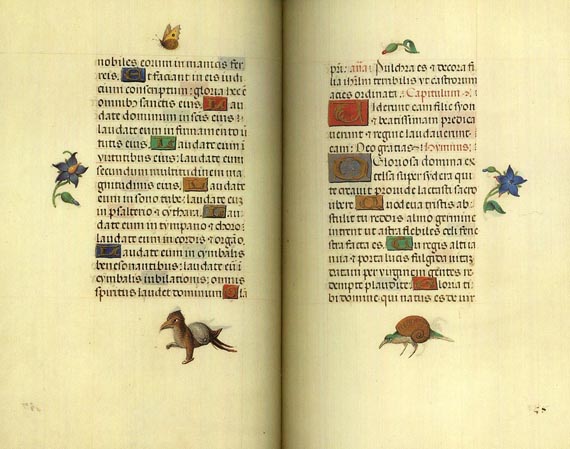 nobiles eorum in manicis fer
reis. Et faciant in eis iudi
cium conscriptum: gloria hec e
omnibus sanctis eius. Lau
date dominum in scis eius:
laudate eum in firmamento v
tutis eius. Laudate eum i
virtutibus eius: laudate eum
secundum multitudinem ma
gnitudinis eius. Laudate
eum in sono tube: laudate eum
in psalterio et cythara. Lau
date eum in tympano et choro:
laudate eum in cordis et orgão.
Laudate eum in cymbalis
benesonantibus: laudate eũ i
cymbalis iubilationis: omnis
spiritus laudet dominum. Gla
pri: aña: Pulchra es et decora fi
lia ihrlm terribilis vt castrorum
acies ordinata. Capitulum
Uiderunt eam filie syon
et beatissimam predica
uerunt et regine laudauerunt
eam: Deo gratias. Hymnus:
O Gloriosa domina ex
celsa super sydera qui
te creauit prouide lactasti sacro
ubere. Quod eua tristis ab
stulit tu reddis almo germine
intrent ut astra flebiles celi fene
stra facta es. Tu regis alti ia
nua et porta lucis fulgida uitaz
datam per virginem gentes re
dempte plaudite. Gloria ti
bi domine qui natus es de vir